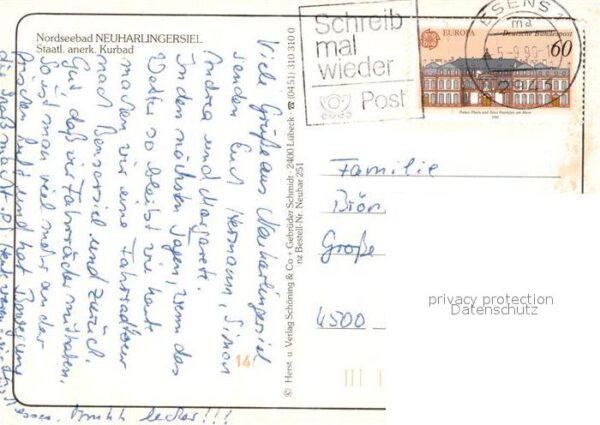 Nordseebad NEUHARLINGERSIEL
Staatl. anerk. Kurbad
Viele Grüße aus Neuharlingersiel
senden Euch Hermann, Simon
Andrea und Margarett.
In den nächsten Tagen, wenn das
Wetter so bleibt wie heute
machen wir eine Fahrradtour
nach Bensersiel und zurück.
Gut daß wir Fahrräder mithaben.
So ist man viel mehr an der
frischen Luft und hat Bewegung
die Spaß macht. P.S. Heute
essen. Mmhh lecker!!!
14
© Herst. u. Verlag Schöning & Co + Gebrüder Schmidt · 2400 Lübeck · ☎ (0451) 310 310 0
nz Bestell-Nr. Neuhar 251
Schreib
mal
wieder
Post
EUROPA
Deutsche Bundespost
60
Palais Thurn und Taxis Frankfurt am Main
1990
ESENS
ma
Familie
Große
4500
privacy protection
Datenschutz